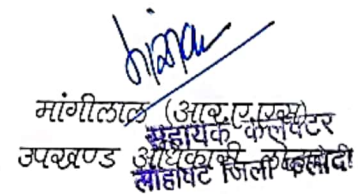 मांगीलाल (आर.ए.एस)
सहायक कलेक्टर
उपखण्ड अधिकारी
लोहावट जिला फलोदी